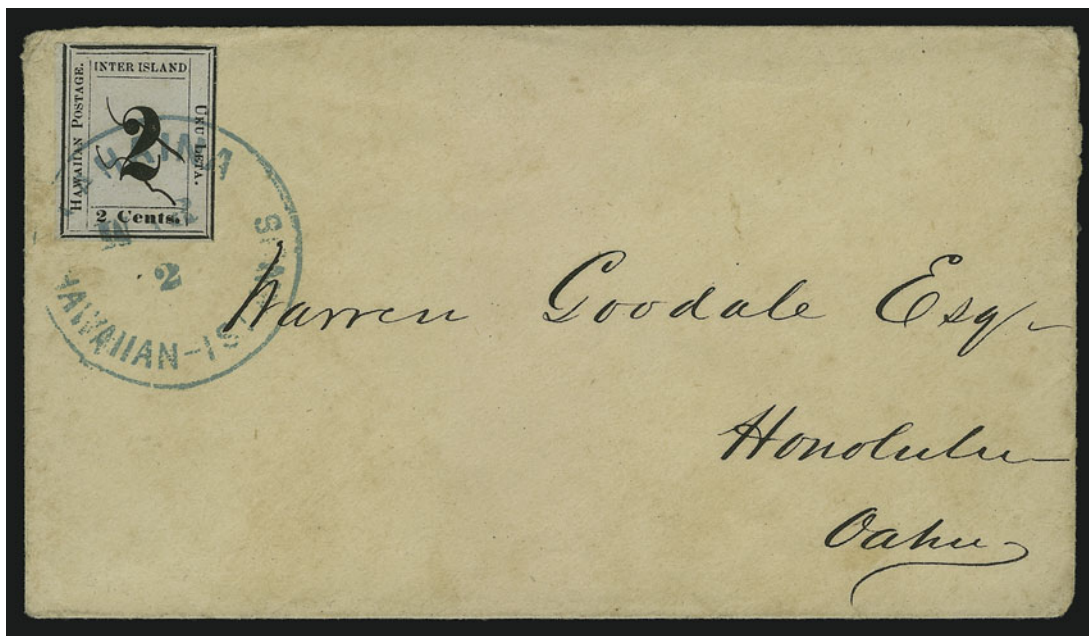 INTER ISLAND
HAWAIIAN POSTAGE.
2
UKU LETA.
2 Cents.
LAHAINA
2
HAWAIIAN-ISL
Warren Goodale Esq
Honolulu
Oahu